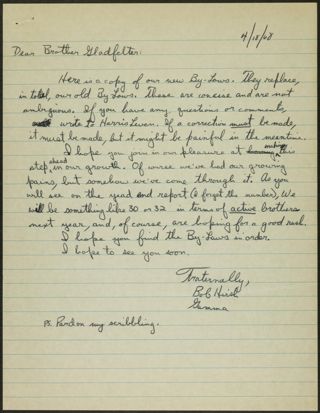 4/18/68
Dear Brother Gladfelter:
Here is a copy of our new By-Laws. They replace,
in total, our old By-Laws. These are concise and are not
ambiguous. If you have any questions or comments,
write to Harris Levan. If a correction must be made,
it must be made, but it might be painful in the meantime.
I hope you join in our pleasure at making this
step ahead in our growth. Of course we've had our growing
pains, but somehow we've come through it. As you
will see on the year end report (I forget the number), We
will be something like 30 or 32 in terms of active brothers
next year, and, of course, are hoping for a good rush.
I hope you find the By-Laws in order.
I hope to see you soon.
Fraternally,
Bob Hirsh
Gamma
P.S. Pardon my scribbling.